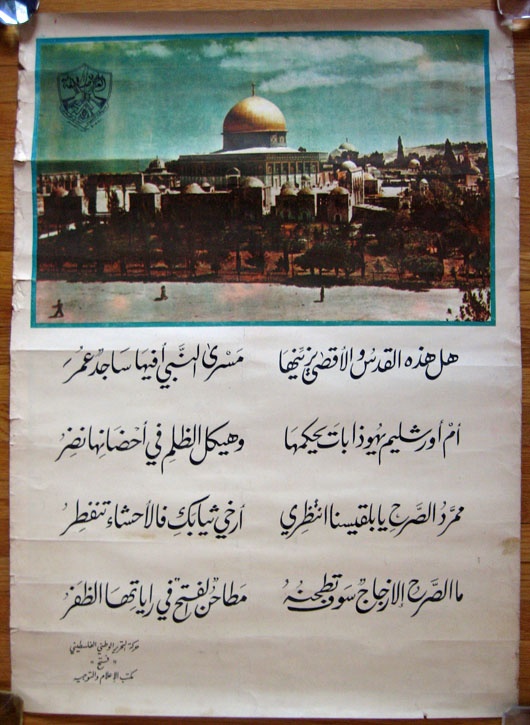 هل هذه القدس والأقصى يزينها مسرى النبي أفيها ساجد عمر
أم أورشليم يهوذا بات يحكمها وهيكل الظلم في أحضانها نضر
ممرد الصرح يا بلقيسنا انتظري أرخي ثيابك فالأحشاء تنفطر
ما الصرح إلا زجاج سوف تطحنه مطاحن لفتح في راياتها الظفر
حركة التحرير الوطني الفلسطيني
"فتح"
مكتب الإعلام والتوجيه